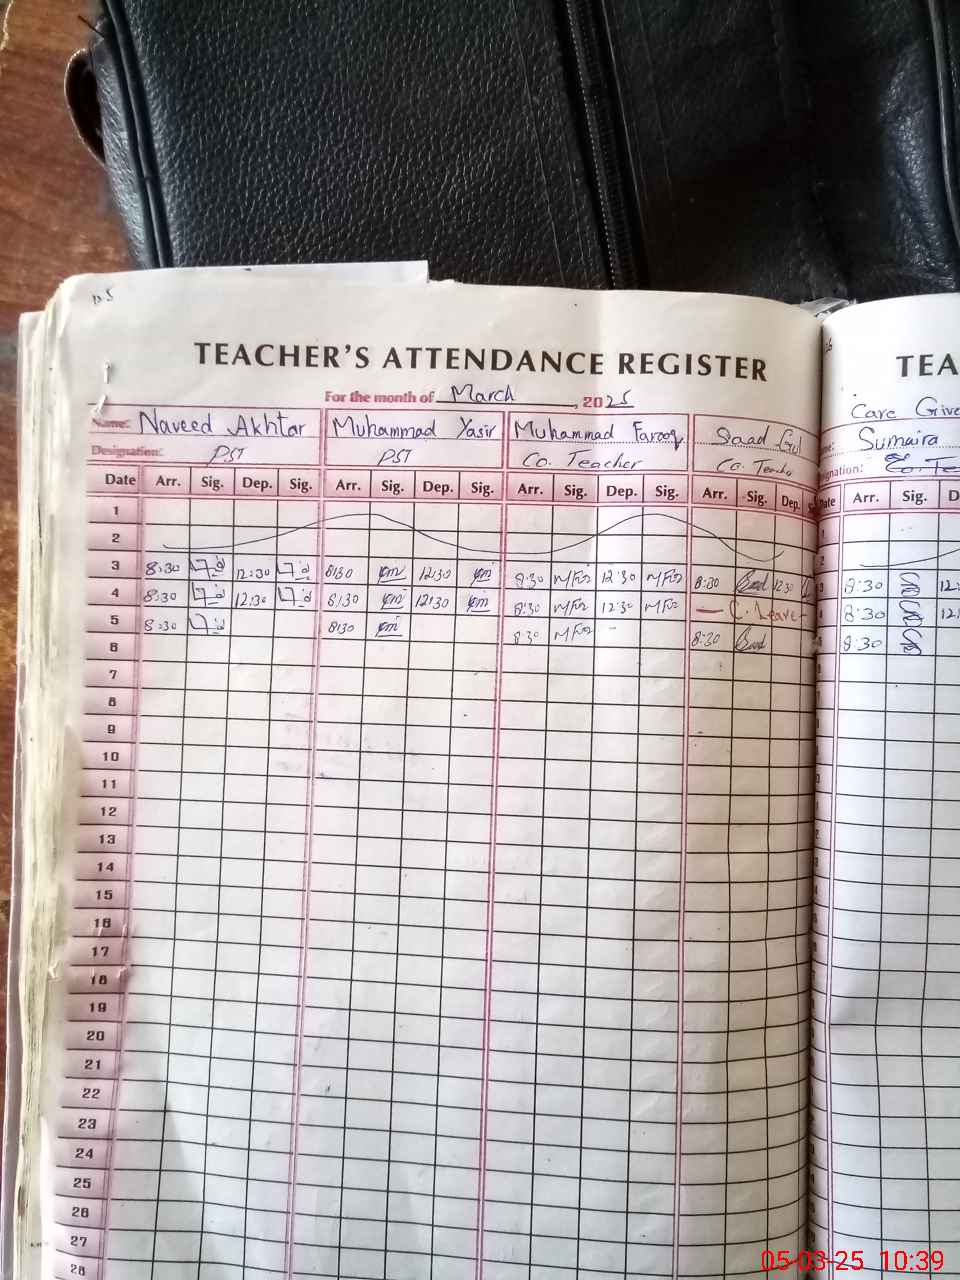 TEACHER'S ATTENDANCE REGISTER
For the month of March, 2025
Name: Naveed Akhtar Muhammad Yasir Muhammad Farooq Saad Gul
Designation: PST PST Co. Teacher Co. Teache
Date Arr. Sig. Dep. Sig. Arr. Sig. Dep. Sig. Arr. Sig. Dep. Sig. Arr. Sig. Dep.
1
2
3 8:30 12:30 8:30 12:30 8:30 12:30 8:30 12:30
4 8:30 12:30 8:30 12:30 8:30 12:30 C. Leave
5 8:30 8:30 8:30 8:30
6
7
8
9
10
11
12
13
14
15
16
17
18
19
20
21
22
23
24
25
26
27
28
TEA
Care Give
Sumaira
Designation: Co. Te
Date Arr. Sig. D
8:30 12:
8:30 12:
8:30
05-03-25 10:39